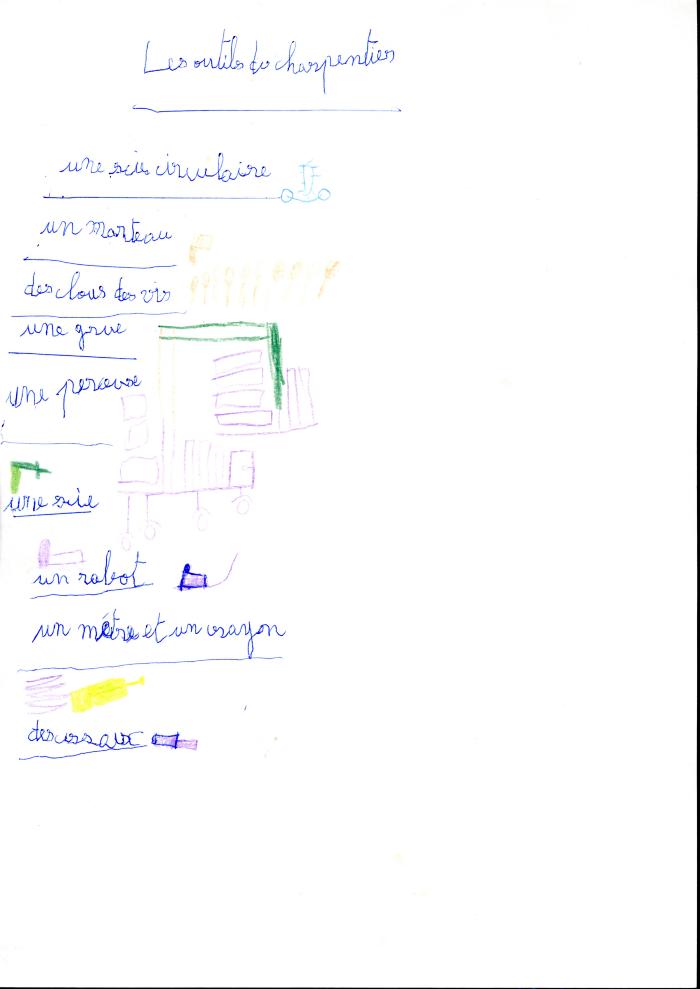 Les outils du charpentier
une scie circulaire
un marteau
des clous des vis
une grue
une perceuse
une scie
un rabot
un mètre et un crayon